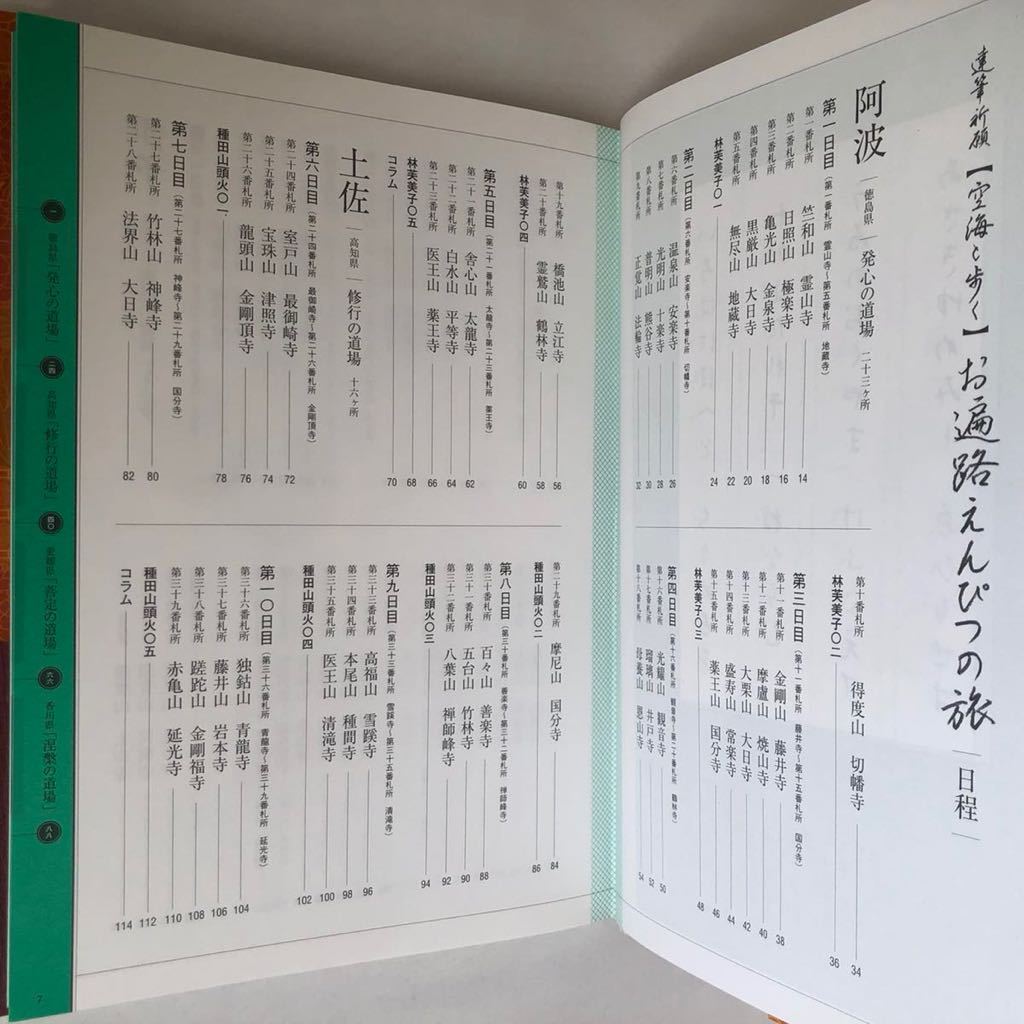 達筆祈願【空海と歩く】お遍路えんぴつの旅 ―日程―
阿波 ―徳島県―発心の道場 二十三ヶ所
第一日目（第一番札所 霊山寺～第五番札所 地蔵寺）
第一番札所 竺和山 霊山寺 14
第二番札所 日照山 極楽寺 16
第三番札所 亀光山 金泉寺 18
第四番札所 黒厳山 大日寺 20
第五番札所 無尽山 地蔵寺 22
林芙美子〇一 24
第二日目（第六番札所 安楽寺～ 切幡寺）
第六番札所 温泉山 安楽寺 26
第七番札所 光明山 十楽寺 28
第八番札所 普明山 熊谷寺 30
第九番札所 正覚山 法輪寺 32
第十番札所 得度山 切幡寺 34
林芙美子〇二 36
第三日目（第十一番札所 藤井寺～第十五番札所 国分寺）
第十一番札所 金剛山 藤井寺 38
第十二番札所 摩廬山 焼山寺 40
第十三番札所 大栗山 大日寺 42
第十四番札所 盛寿山 常楽寺 44
第十五番札所 薬王山 国分寺 46
林芙美子〇三 48
第四日目（第十六番札所 観音寺～第二十番札所 鶴林寺）
第十六番札所 光耀山 観音寺 50
第十七番札所 瑠璃山 井戸寺 52
第十八番札所 母養山 恩山寺 54
第十九番札所 橋池山 立江寺 56
第二十番札所 霊鷲山 鶴林寺 58
林芙美子〇四 60
第五日目（第二十一番札所 太龍寺～第二十三番札所 薬王寺）
第二十一番札所 舎心山 太龍寺 62
第二十二番札所 白水山 平等寺 64
第二十三番札所 医王山 薬王寺 66
林芙美子〇五 68
コラム 70
土佐 ―高知県―修行の道場 十六ヶ所
第六日目（第二十四番札所 最御崎寺～第二十六番札所 金剛頂寺）
第二十四番札所 室戸山 最御崎寺 72
第二十五番札所 宝珠山 津照寺 74
第二十六番札所 龍頭山 金剛頂寺 76
種田山頭火〇一 78
第七日目（第二十七番札所 神峰寺～第二十九番札所 国分寺）
第二十七番札所 竹林山 神峰寺 80
第二十八番札所 法界山 大日寺 82
第二十九番札所 摩尼山 国分寺 84
種田山頭火〇二 86
第八日目（第三十番札所 善楽寺～第三十二番札所 禅師峰寺）
第三十番札所 百々山 善楽寺 88
第三十一番札所 五台山 竹林寺 90
第三十二番札所 八葉山 禅師峰寺 92
種田山頭火〇三 94
第九日目（第三十三番札所 雪蹊寺～第三十五番札所 清滝寺）
第三十三番札所 高福山 雪蹊寺 96
第三十四番札所 本尾山 種間寺 98
第三十五番札所 医王山 清滝寺 100
種田山頭火〇四 102
第一〇日目（第三十六番札所 青龍寺～第三十九番札所 延光寺）
第三十六番札所 独鈷山 青龍寺 104
第三十七番札所 藤井山 岩本寺 106
第三十八番札所 蹉跎山 金剛福寺 108
第三十九番札所 赤亀山 延光寺 110
種田山頭火〇五 112
コラム 114
一 徳島県「発心の道場」 二四 高知県「修行の道場」 四〇 愛媛県「菩提の道場」 六六 香川県「涅槃の道場」 八八
7